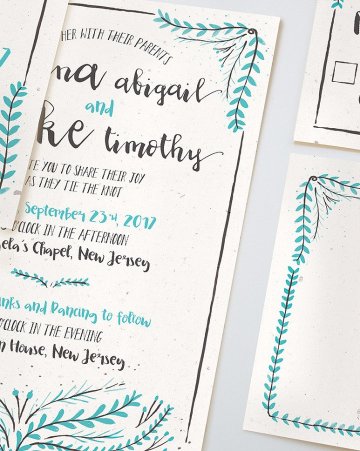 HER WITH THEIR PARENTS
na abigail
and
ke timothy
E YOU TO SHARE THEIR JOY
AS THEY TIE THE KNOT
September 23rd, 2017
O'CLOCK IN THE AFTERNOON
ela's Chapel, New Jersey
nks and Dancing to follow
O'CLOCK IN THE EVENING
n House, New Jersey